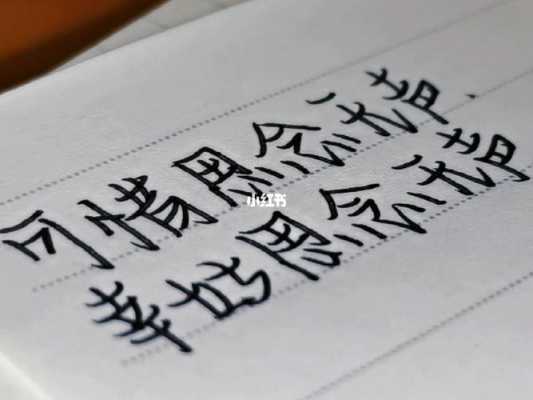 可惜思念无声.
幸好思念无声
小红书